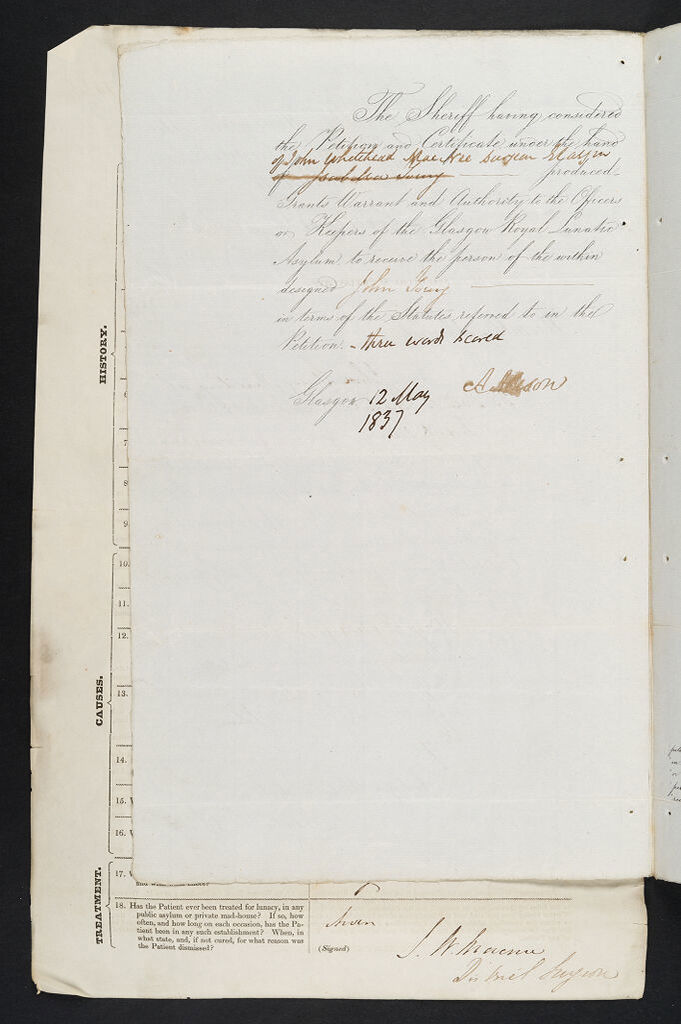 The Sheriff having considered
the Petition and Certificate under the hand
of John Whitehead Surgeon Glasgow
of Isabella produced
Grants Warrant and Authority to the Officers
or Keepers of the Glasgow Royal Lunatic
Asylum to receive the person of the within
designed John
in terms of the Statutes referred to in the
Petition. - three words scored
Glasgow 12 May
1837
HISTORY.
6
7
8
9
10.
11.
12.
CAUSES.
13.
14.
15. W
16. W
TREATMENT.
17. W
18. Has the Patient ever been treated for lunacy, in any
public asylum or private mad-house? If so, how
often, and how long on each occasion, has the Pa-
tient been in any such establishment? When, in
what state, and, if not cured, for what reason was
the Patient dismissed?
(Signed) J. W.
District Surgeon